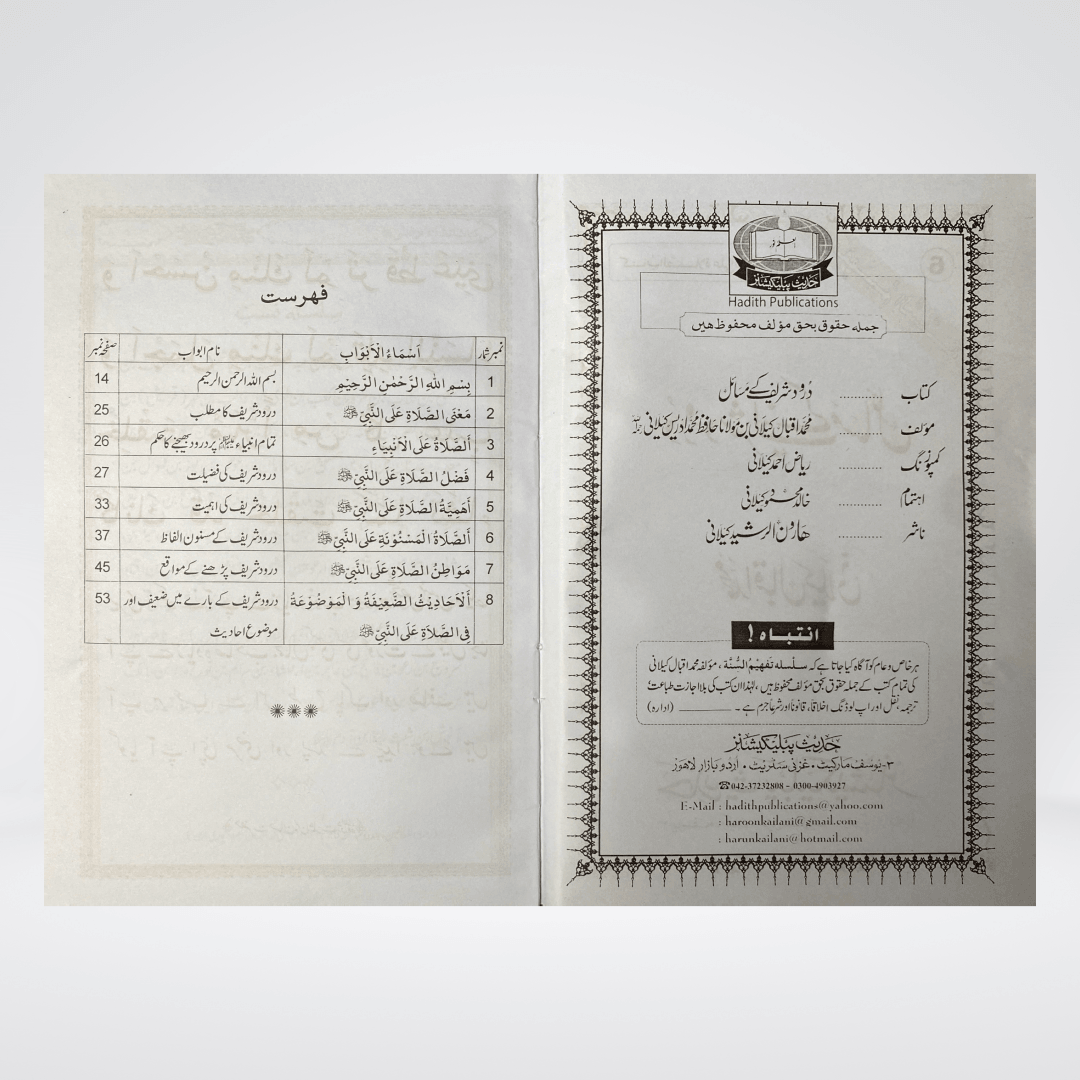 حدیث پبلیکیشنز
Hadith Publications
جملہ حقوق بحق مؤلف محفوظ ہیں
کتاب ............ درود شریف کے مسائل
مؤلف ............ محمد اقبال کیلانی بن مولانا حافظ محمد ادریس کیلانی رحمہ اللہ
کمپوزنگ ............ ریاض احمد کیلانی
اہتمام ............ خالد محمود کیلانی
ناشر ............ ھارون الرشید کیلانی
انتباہ !
ہر خاص و عام کو آگاہ کیا جاتا ہے کہ سلسلہ تفہیم السنۃ ، مؤلفہ محمد اقبال کیلانی
کی تمام کتب کے جملہ حقوق بحق مؤلف محفوظ ہیں ، لہٰذا ان کتب کی بلا اجازت طباعت ،
ترجمہ، نقل اور اپ لوڈنگ اخلاقاً، قانوناً اور شرعاً جرم ہے ۔ ________ (ادارہ)
حدیث پبلیکیشنز
۳-یوسف مارکیٹ • غزنی سٹریٹ • اردو بازار لاہور
☎042-37232808 - 0300-4903927
E-Mail : hadithpublications@yahoo.com
: haroonkailani@gmail.com
: harunkailani@hotmail.com
فہرست
نمبر شمار اَسْمَاءُ الْاَبْوَابِ نام ابواب صفحہ نمبر
1 بِسْمِ اللّٰهِ الرَّحْمٰنِ الرَّحِيْمِ بسم اللہ الرحمن الرحیم 14
2 مَعْنَى الصَّلَاةِ عَلَى النَّبِيِّ ﷺ درود شریف کا مطلب 25
3 اَلصَّلَاةُ عَلَى الْاَنْبِيَاءِ تمام انبیاء ﷺ پر درود بھیجنے کا حکم 26
4 فَضْلُ الصَّلَاةِ عَلَى النَّبِيِّ ﷺ درود شریف کی فضیلت 27
5 اَهَمِيَّةُ الصَّلَاةِ عَلَى النَّبِيِّ ﷺ درود شریف کی اہمیت 33
6 اَلصَّلَاةُ الْمَسْنُوْنَةِ عَلَى النَّبِيِّ ﷺ درود شریف کے مسنون الفاظ 37
7 مَوَاطِنُ الصَّلَاةِ عَلَى النَّبِيِّ ﷺ درود شریف پڑھنے کے مواقع 45
8 اَلْاَحَادِيْثُ الضَّعِيْفَةُ وَ الْمَوْضُوْعَةُ درود شریف کے بارے میں ضعیف اور 53
فِى الصَّلَاةِ عَلَى النَّبِيِّ ﷺ موضوع احادیث